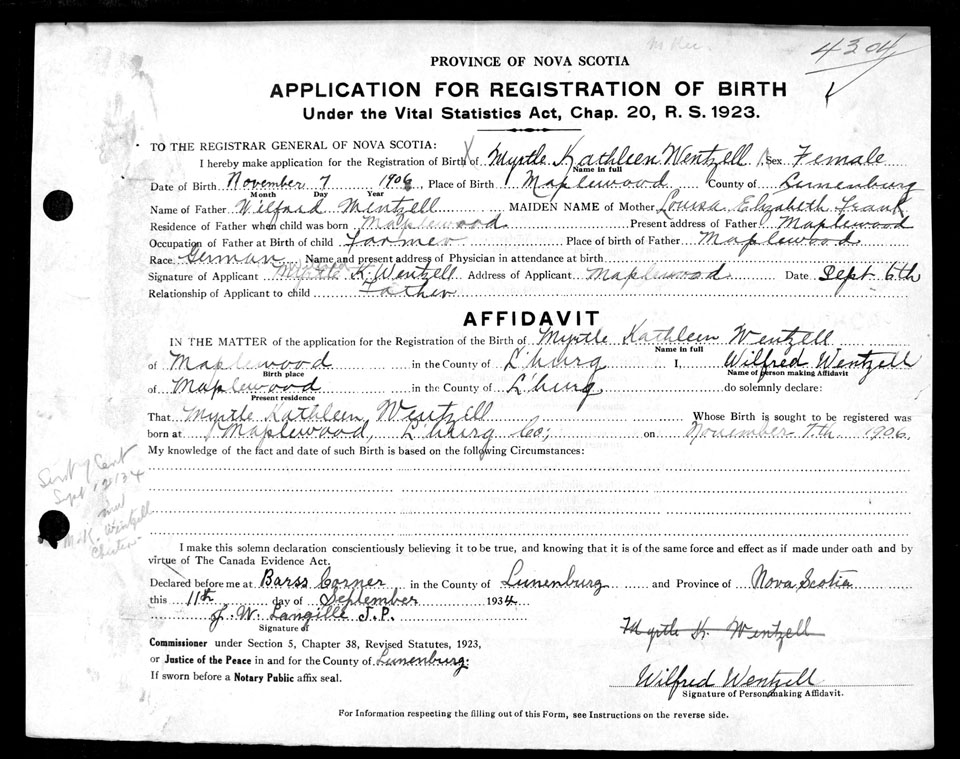 4304
PROVINCE OF NOVA SCOTIA
APPLICATION FOR REGISTRATION OF BIRTH
Under the Vital Statistics Act, Chap. 20, R. S. 1923.
TO THE REGISTRAR GENERAL OF NOVA SCOTIA:
I hereby make application for the Registration of Birth of Myrtle Kathleen Wentzell Sex Female
Name in full
Date of Birth November 7 1906, Place of Birth Maplewood County of Lunenburg
Month Day Year
Name of Father Wilfred Wentzell MAIDEN NAME of Mother Louisa Elizabeth Frank
Residence of Father when child was born Maplewood Present address of Father Maplewood
Occupation of Father at Birth of child Farmer Place of birth of Father Maplewood
Race German Name and present address of Physician in attendance at birth
Signature of Applicant Myrtle K. Wentzell Address of Applicant Maplewood Date Sept 6th
Relationship of Applicant to child Father
AFFIDAVIT
IN THE MATTER of the application for the Registration of the Birth of Myrtle Kathleen Wentzell
Name in full
of Maplewood in the County of L'burg I, Wilfred Wentzell
Birth place Name of person making Affidavit
of Maplewood in the County of L'burg do solemnly declare:
Present residence
That Myrtle Kathleen Wentzell Whose Birth is sought to be registered was
born at Maplewood, L'burg Co; on November 7th 1906.
My knowledge of the fact and date of such Birth is based on the following Circumstances:
Sent 9 Cent
Sept 12/34
M. K. Wentzell
Chester
I make this solemn declaration conscientiously believing it to be true, and knowing that it is of the same force and effect as if made under oath and by
virtue of The Canada Evidence Act.
Declared before me at Barss Corner in the County of Lunenburg and Province of Nova Scotia
this 11th day of September 1934
J. W. Langille J.P.
Signature of
Myrtle K. Wentzell
Commissioner under Section 5, Chapter 38, Revised Statutes, 1923,
or Justice of the Peace in and for the County of Lunenburg.
If sworn before a Notary Public affix seal.
Wilfred Wentzell
Signature of Person making Affidavit.
For Information respecting the filling out of this Form, see Instructions on the reverse side.